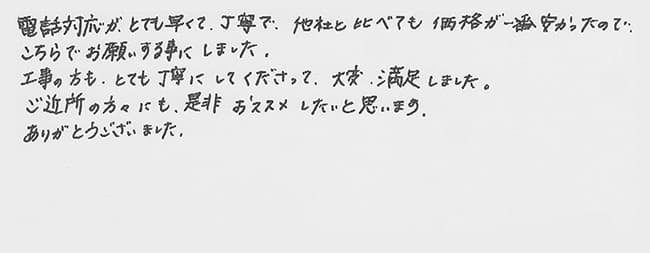 電話対応が、とても早くて、丁寧で、他社と比べても価格が一番安かったので、
こちらでお願いする事にしました。
工事の方も、とても丁寧にしてくださって、大変、満足しました。
ご近所の方々にも、是非おススメしたいと思います。
ありがとうございました。